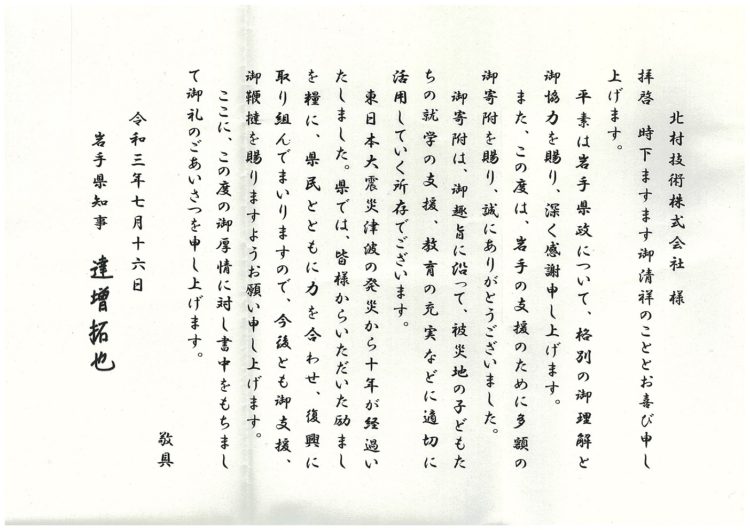 北村技術株式会社　様
拝啓　時下ますます御清祥のこととお喜び申し
上げます。
平素は岩手県政について、格別の御理解と
御協力を賜り、深く感謝申し上げます。
また、この度は、岩手の支援のために多額の
御寄附を賜り、誠にありがとうございました。
御寄附は、御趣旨に沿って、被災地の子どもた
ちの就学の支援、教育の充実などに適切に
活用していく所存でございます。
東日本大震災津波の発災から十年が経過い
たしました。県では、皆様からいただいた励まし
を糧に、県民とともに力を合わせ、復興に
取り組んでまいりますので、今後とも御支援、
御鞭撻を賜りますようお願い申し上げます。
ここに、この度の御厚情に対し書中をもちまし
て御礼のごあいさつを申し上げます。
敬具
令和三年七月十六日
岩手県知事　達増拓也